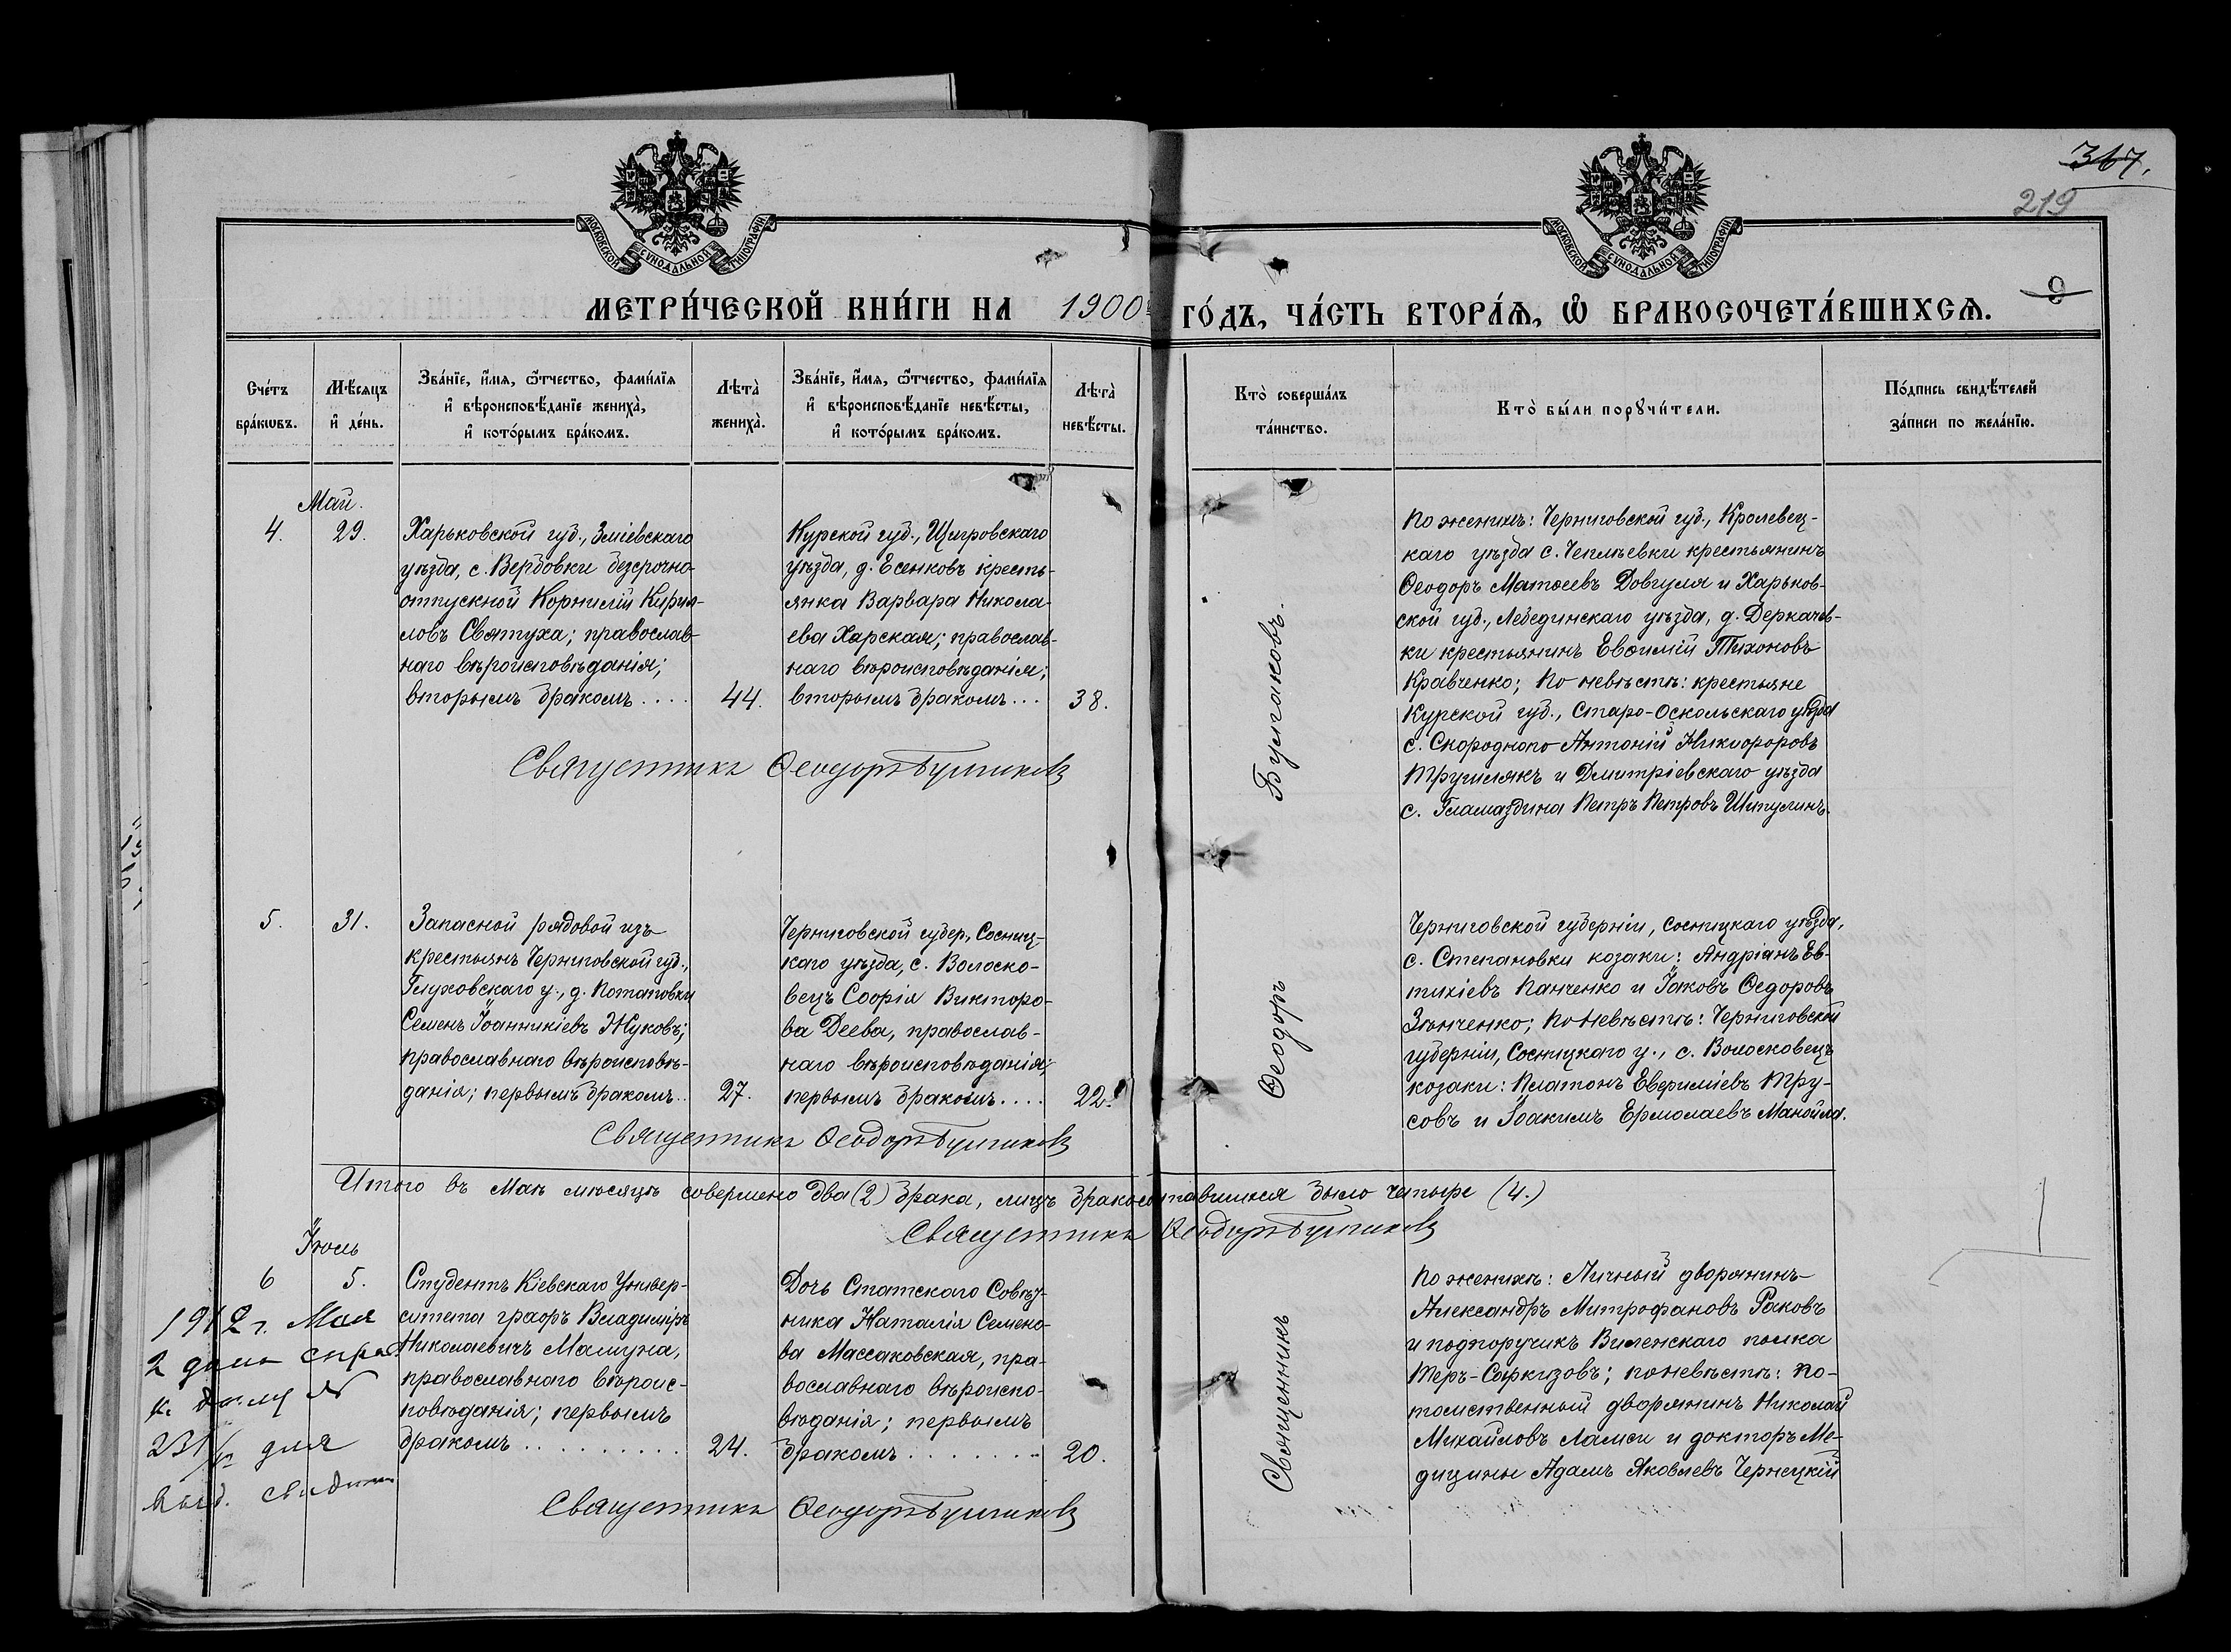 367.
219
МОСКОВСКОЙ СѴНОДАЛЬНОЙ ТИПОГРАФІИ
МОСКОВСКОЙ СѴНОДАЛЬНОЙ ТИПОГРАФІИ
МЕТРИ́ЧЕСКОЙ КНИ́ГИ НА 1900 ГО́ДЪ, ЧА́СТЬ ВТОРА́Ѧ, Ѽ БРАКОСОЧЕТА́ВШИХСѦ.
9
Сче́тъ
бра́кѡвъ.
Мѣ́сяцъ
и҆ де́нь.
Зва́нїе, и҆́мя, ѻ҆́тчество, фами́лїя
и҆ вѣроисповѣ́данїе жениха̀,
и҆ кото́рымъ бра́комъ.
Лѣта̀
жениха̀.
Зва́нїе, и҆́мя, ѻ҆́тчество, фами́лїя
и҆ вѣроисповѣ́данїе невѣ́сты,
и҆ кото́рымъ бра́комъ.
Лѣта̀
невѣ́сты.
Кто̀ соверша́лъ
та́инство.
Кто̀ бы́ли порꙋчи́тели.
По́дпись свидѣ́телей
за́писи по жела́нїю.
Май.
4.
29.
Харьковской губ., Зміевскаго
уѣзда, с. Вербовки безсрочно-
отпускной Корнилій Кирил-
ловъ Святуха; православ-
наго вѣроисповѣданія;
вторымъ бракомъ....
44.
Курской губ., Щигровскаго
уѣзда, д. Есенковъ кресть-
янка Варвара Никола-
ева Харская; православ-
наго вѣроисповѣданія;
вторымъ бракомъ...
38.
По женихѣ: Черниговской губ., Кролевец-
каго уѣзда с. Чеплѣевки крестьянинъ
Ѳеодоръ Матѳеевъ Довгуля и Харьков-
ской губ., Лебединскаго уѣзда, д. Деркачев-
ки крестьянинъ Евѳимій Тихоновъ
Кравченко; По невѣстѣ: крестьяне
Курской губ., Старо-Оскольскаго уѣзда
с. Скороднаго Антоній Никифоровъ
и Дмитріевскаго уѣзда
с. Гламаздина Петръ Петровъ Шипулинъ.
Священникъ Ѳеодоръ Булгаковъ
5.
31.
Запасной рядовой изъ
крестьянъ Черниговской губ.,
Глуховскаго у., д. Потаповки
Семенъ Іоанникіевъ Жуковъ;
православнаго вѣроисповѣ-
данія; первымъ бракомъ..
27.
Черниговской губер., Сосниц-
каго уѣзда, с. Волоско-
вецъ Софія Викторо-
ва Деева, православ-
наго вѣроисповѣданія;
первымъ бракомъ....
22.
Черниговской губерніи, Сосницкаго уѣзда,
с. Степановки козаки: Андріанъ Ев-
тихіевъ Панченко и Іаковъ Ѳедоровъ
Зѣнченко; По невѣстѣ: Черниговской
губерніи, Сосницкаго у., с. Волосковецъ
козаки: Платонъ Евфиміевъ Тру-
совъ и Іоакимъ Ермолаевъ Манойла.
Священникъ Ѳеодоръ Булгаковъ
Итого въ Маѣ мѣсяцѣ совершено два (2) брака, лицъ бракосочетавшихся было четыре (4.)
Священникъ Ѳеодоръ Булгаковъ
6
5.
Студентъ Кіевскаго Универ-
ситета графъ Владиміръ
Николаевичъ Мамуна,
православнаго вѣроис-
повѣданія; первымъ
бракомъ..........
24.
Дочь Статскаго Совѣт-
ника Наталія Семено-
ва Массаковская, пра-
вославнаго вѣроиспо-
вѣданія; первымъ
бракомъ.......
20.
По женихѣ: Личный дворянинъ
Александръ Митрофановъ Раковъ
и подпоручикъ Виленскаго полка
Теръ-Сыркизовъ; по невѣстѣ: По-
томственный дворянинъ Николай
Михайловъ Ламси и докторъ Ме-
дицины Адамъ Яковлевъ Чернецкій
Священникъ Ѳеодоръ Булгаковъ
Священникъ Ѳеодоръ Булгаковъ.
1912 г. Мая
2 дана
№
231 для